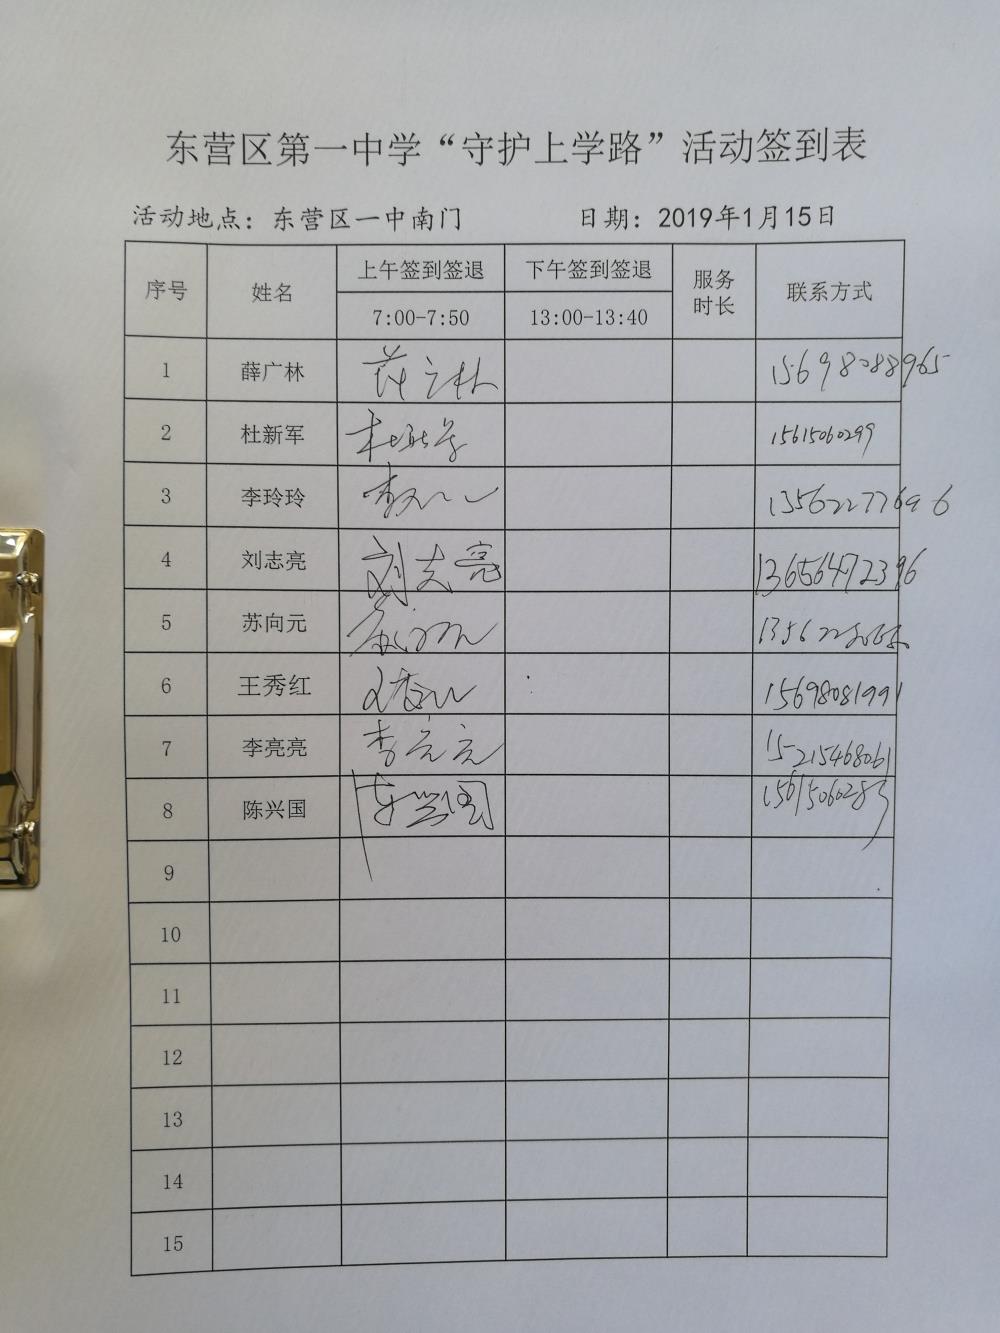 东营区第一中学“守护上学路”活动签到表
活动地点：东营区一中南门 日期：2019年1月15日
序号 姓名 上午签到签退 下午签到签退 服务时长 联系方式
7:00-7:50 13:00-13:40
1 薛广林 薛广林 15698088965
2 杜新军 15615060299
3 李玲玲 13562277696
4 刘志亮 刘志亮 13656472396
5 苏向元
6 王秀红 15698081991
7 李亮亮 李亮亮 15215468061
8 陈兴国 陈兴国 15615060283
9
10
11
12
13
14
15